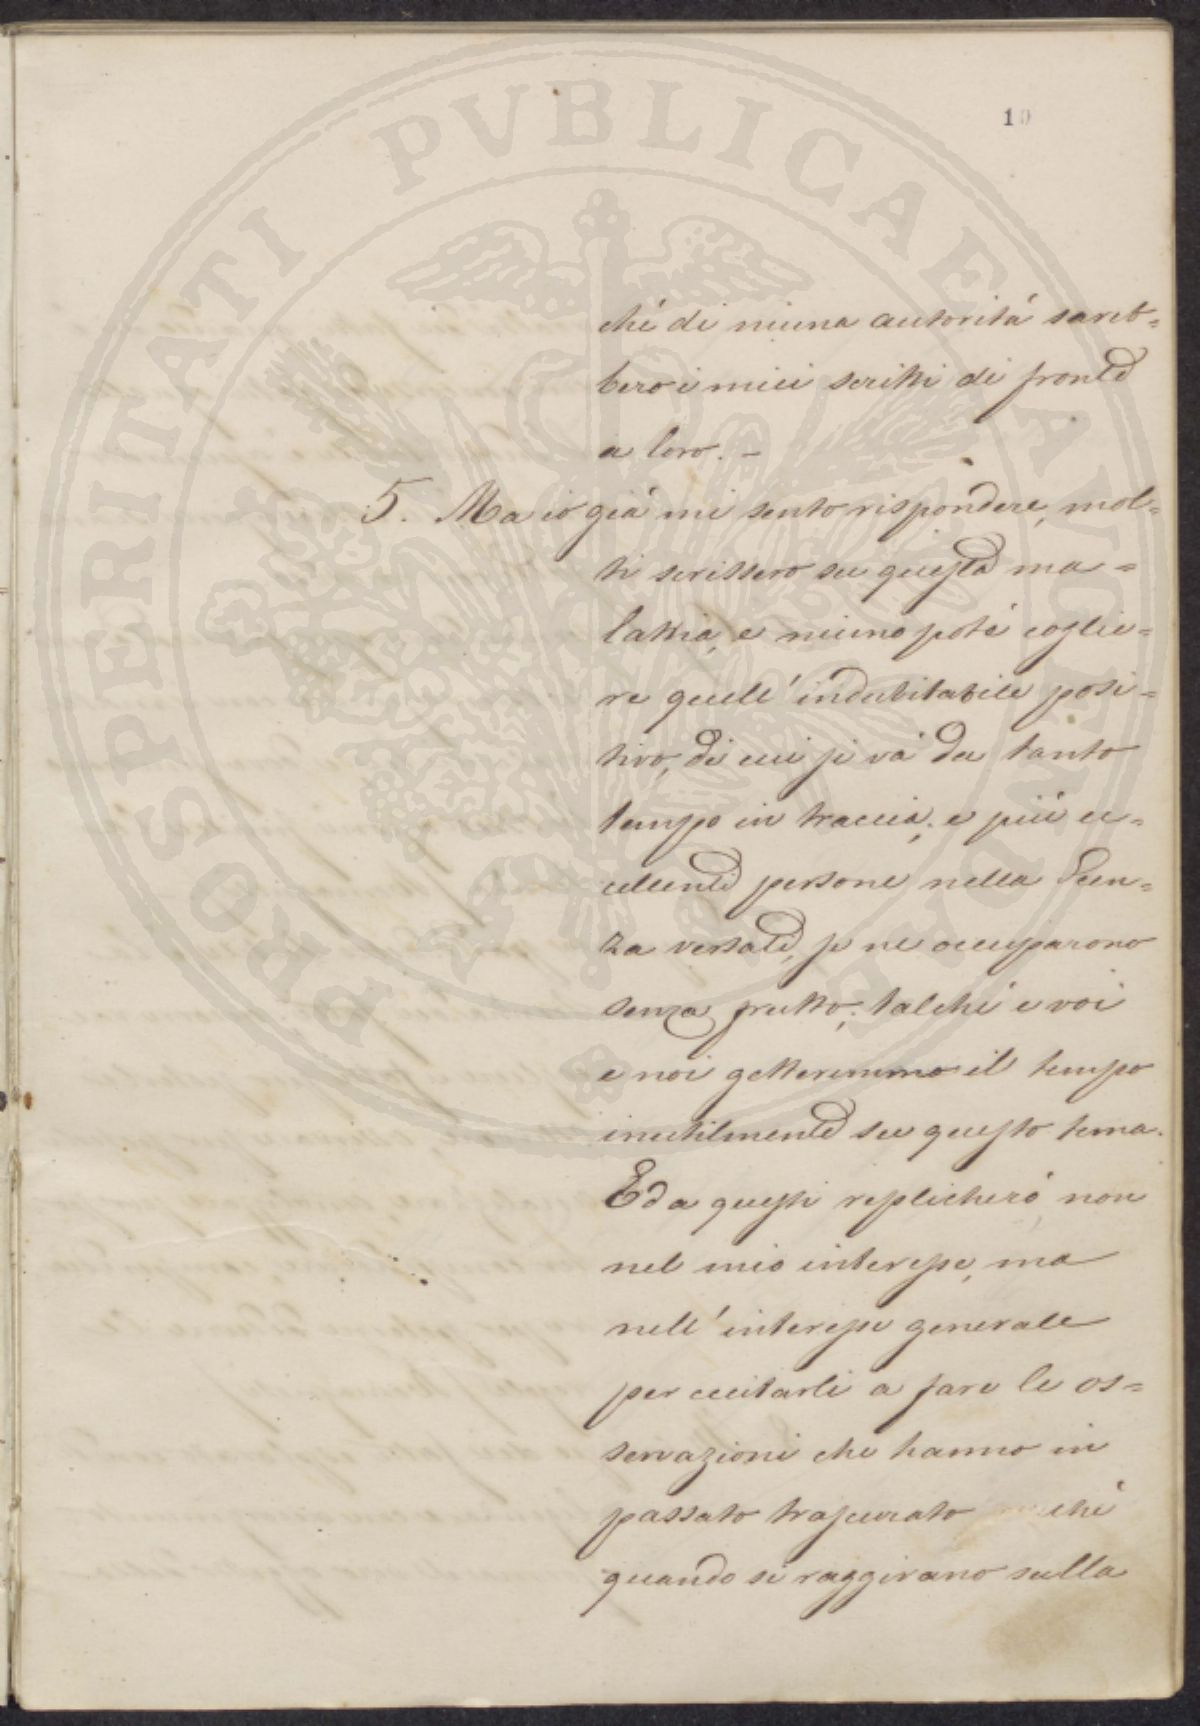 PROSPERITATI PVBLICAE AVGENDAE
10
ché di niuna autoritá sareb=
bero i miei scritti di fronte
a loro. –
5. Ma io giá mi sento rispondere, mol=
ti scrissero su questa ma=
lattia, e niuno poté coglie=
re quell' indubitabile posi=
tivo, di cui si vá da tanto
tempo in traccia; e piú ec=
cellenti persone nella Scen=
za versate, se ne occuparono
senza frutto; talché e voi
e noi getteremmo il tempo
inutilmente su questo tema.
Ed a questi replicheró, non
nel mio interesse, ma
nell' interesse generale
per eccitarli a fare le os=
servazioni che hanno in
passato trascurato ché
quando si raggirano sulla